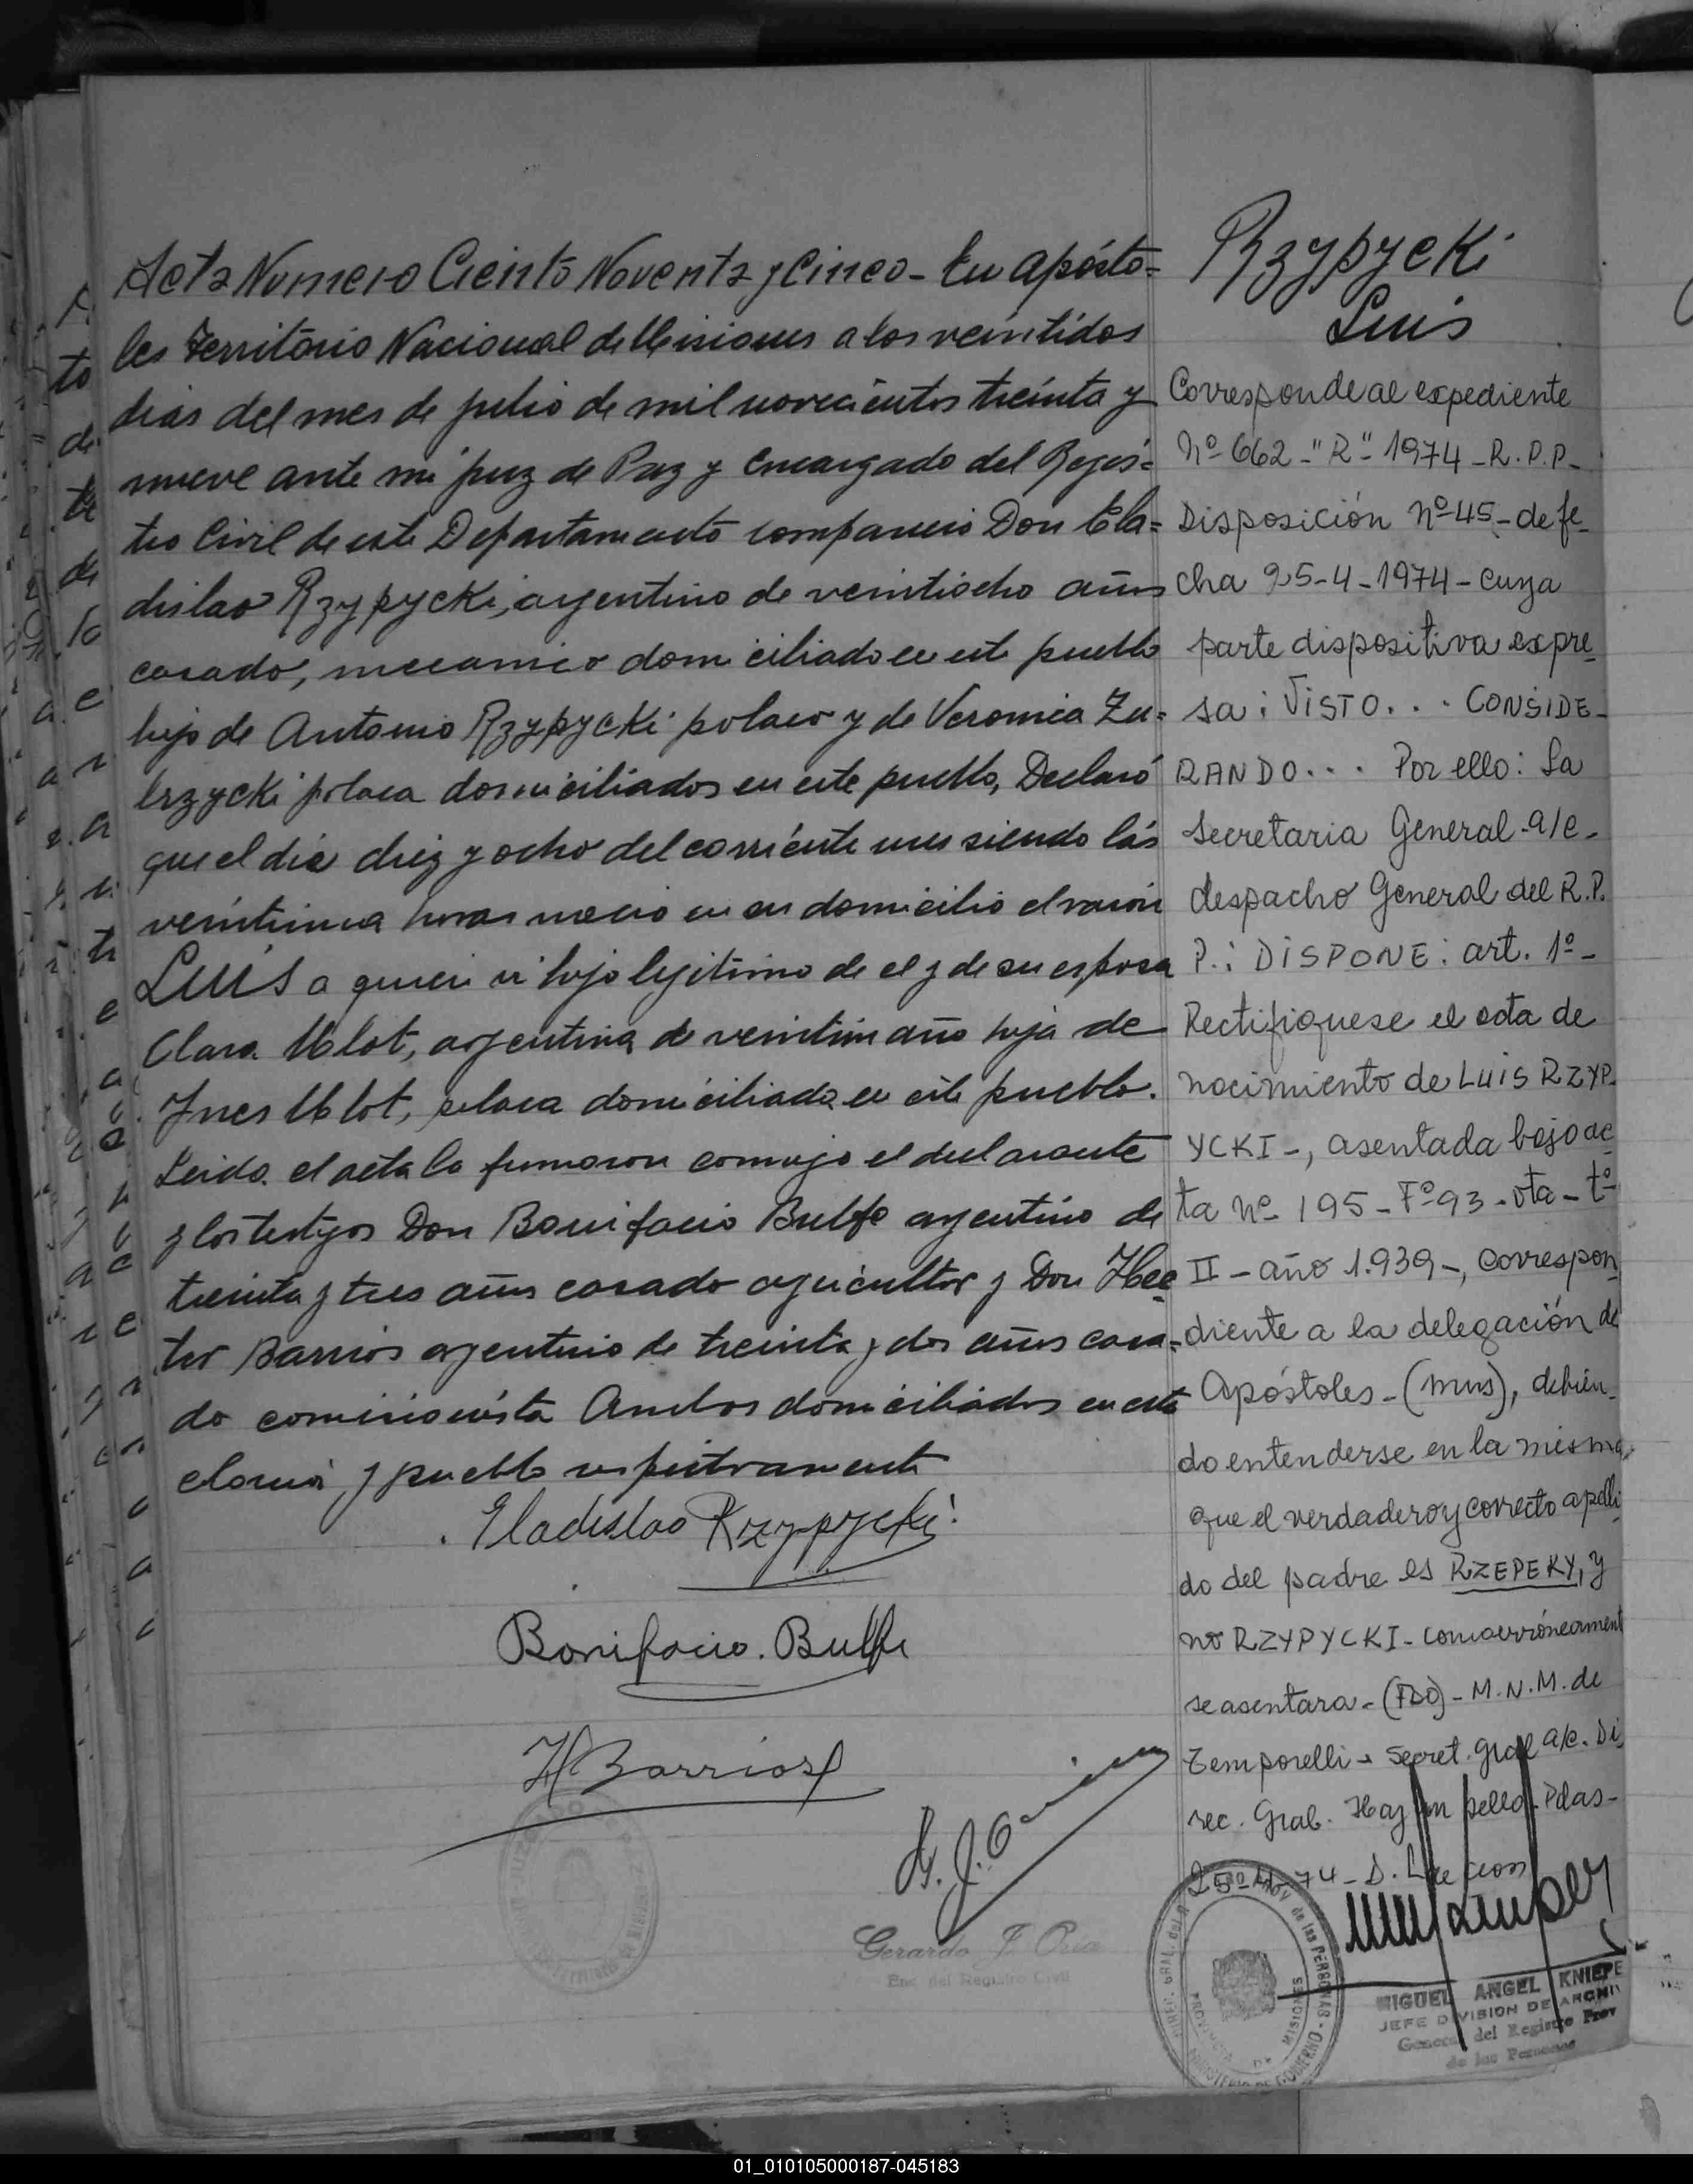 Acta Numero Ciento Noventa y Cinco - En Apósto=
les Territorio Nacional de Misiones a los veintidos
dias del mes de julio de mil novecientos treinta y
nueve ante mi juez de Paz y Encargado del Regis=
tro Civil de este Departamento compareció Don Ela=
dislao Rzypycki, argentino de veintiocho años
casado, mecanico domiciliado en este pueblo
hijo de Antonio Rzypycki polaco y de Veronica Za=
krzycki polaca domiciliados en este pueblo, Declaró
que el dia diez y ocho del corriente mes siendo las
horas nació en su domicilio el varón
LUIS a quien vi hijo legitimo de el y de su esposa
Clara argentina de veintiun año hija de
Ines polaca domiciliada en este pueblo.
Leida el acta la firmaron conmigo el declarante
y los testigos Don Bonifacio Bulfe argentino de
treinta y tres años casado agricultor y Don Hec=
tor Barrios argentino de treinta y dos años casa=
do comisionista Ambos domiciliados en esta
colonia y pueblo respectivamente
Eladislao Rzypycki
Bonifacio. Bulfe
H Barrios
Gerardo J. Oria
Enc. del Registro Civil
Rzypycki
Luis
Corresponde al expediente
Nº 662 - "R" - 1974 - R.P.P. -
Disposición Nº 45 - de fe-
cha 25-4-1974 - cuya
parte dispositiva expre-
sa: VISTO... CONSIDE-
RANDO... Por ello: La
Secretaria General - a/c -
despacho General del R.P.
P.: DISPONE: art. 1º -
Rectifiquese el acta de
nacimiento de LUIS RZYP-
YCKI -, asentada bajo ac
ta Nº 195 - Fº 93 - vta - tº
II - año 1.939 -, correspon
diente a la delegación de
Apóstoles - (Mns), debien-
do entenderse en la misma,
que el verdadero y correcto apelli
do del padre es RZEPEKY, y
no RZYPYCKI - como erróneament
se asentara - (FDO) - M.N.M. de
Temporelli - Secret. Gral a/c. Di
rec. Gral. Hay un sello. Pdas -
25-4-74 - D.
MIGUEL ANGEL KNIEPE
JEFE DIVISION DE ARCHIV
General del Registro Prov
de las Personas